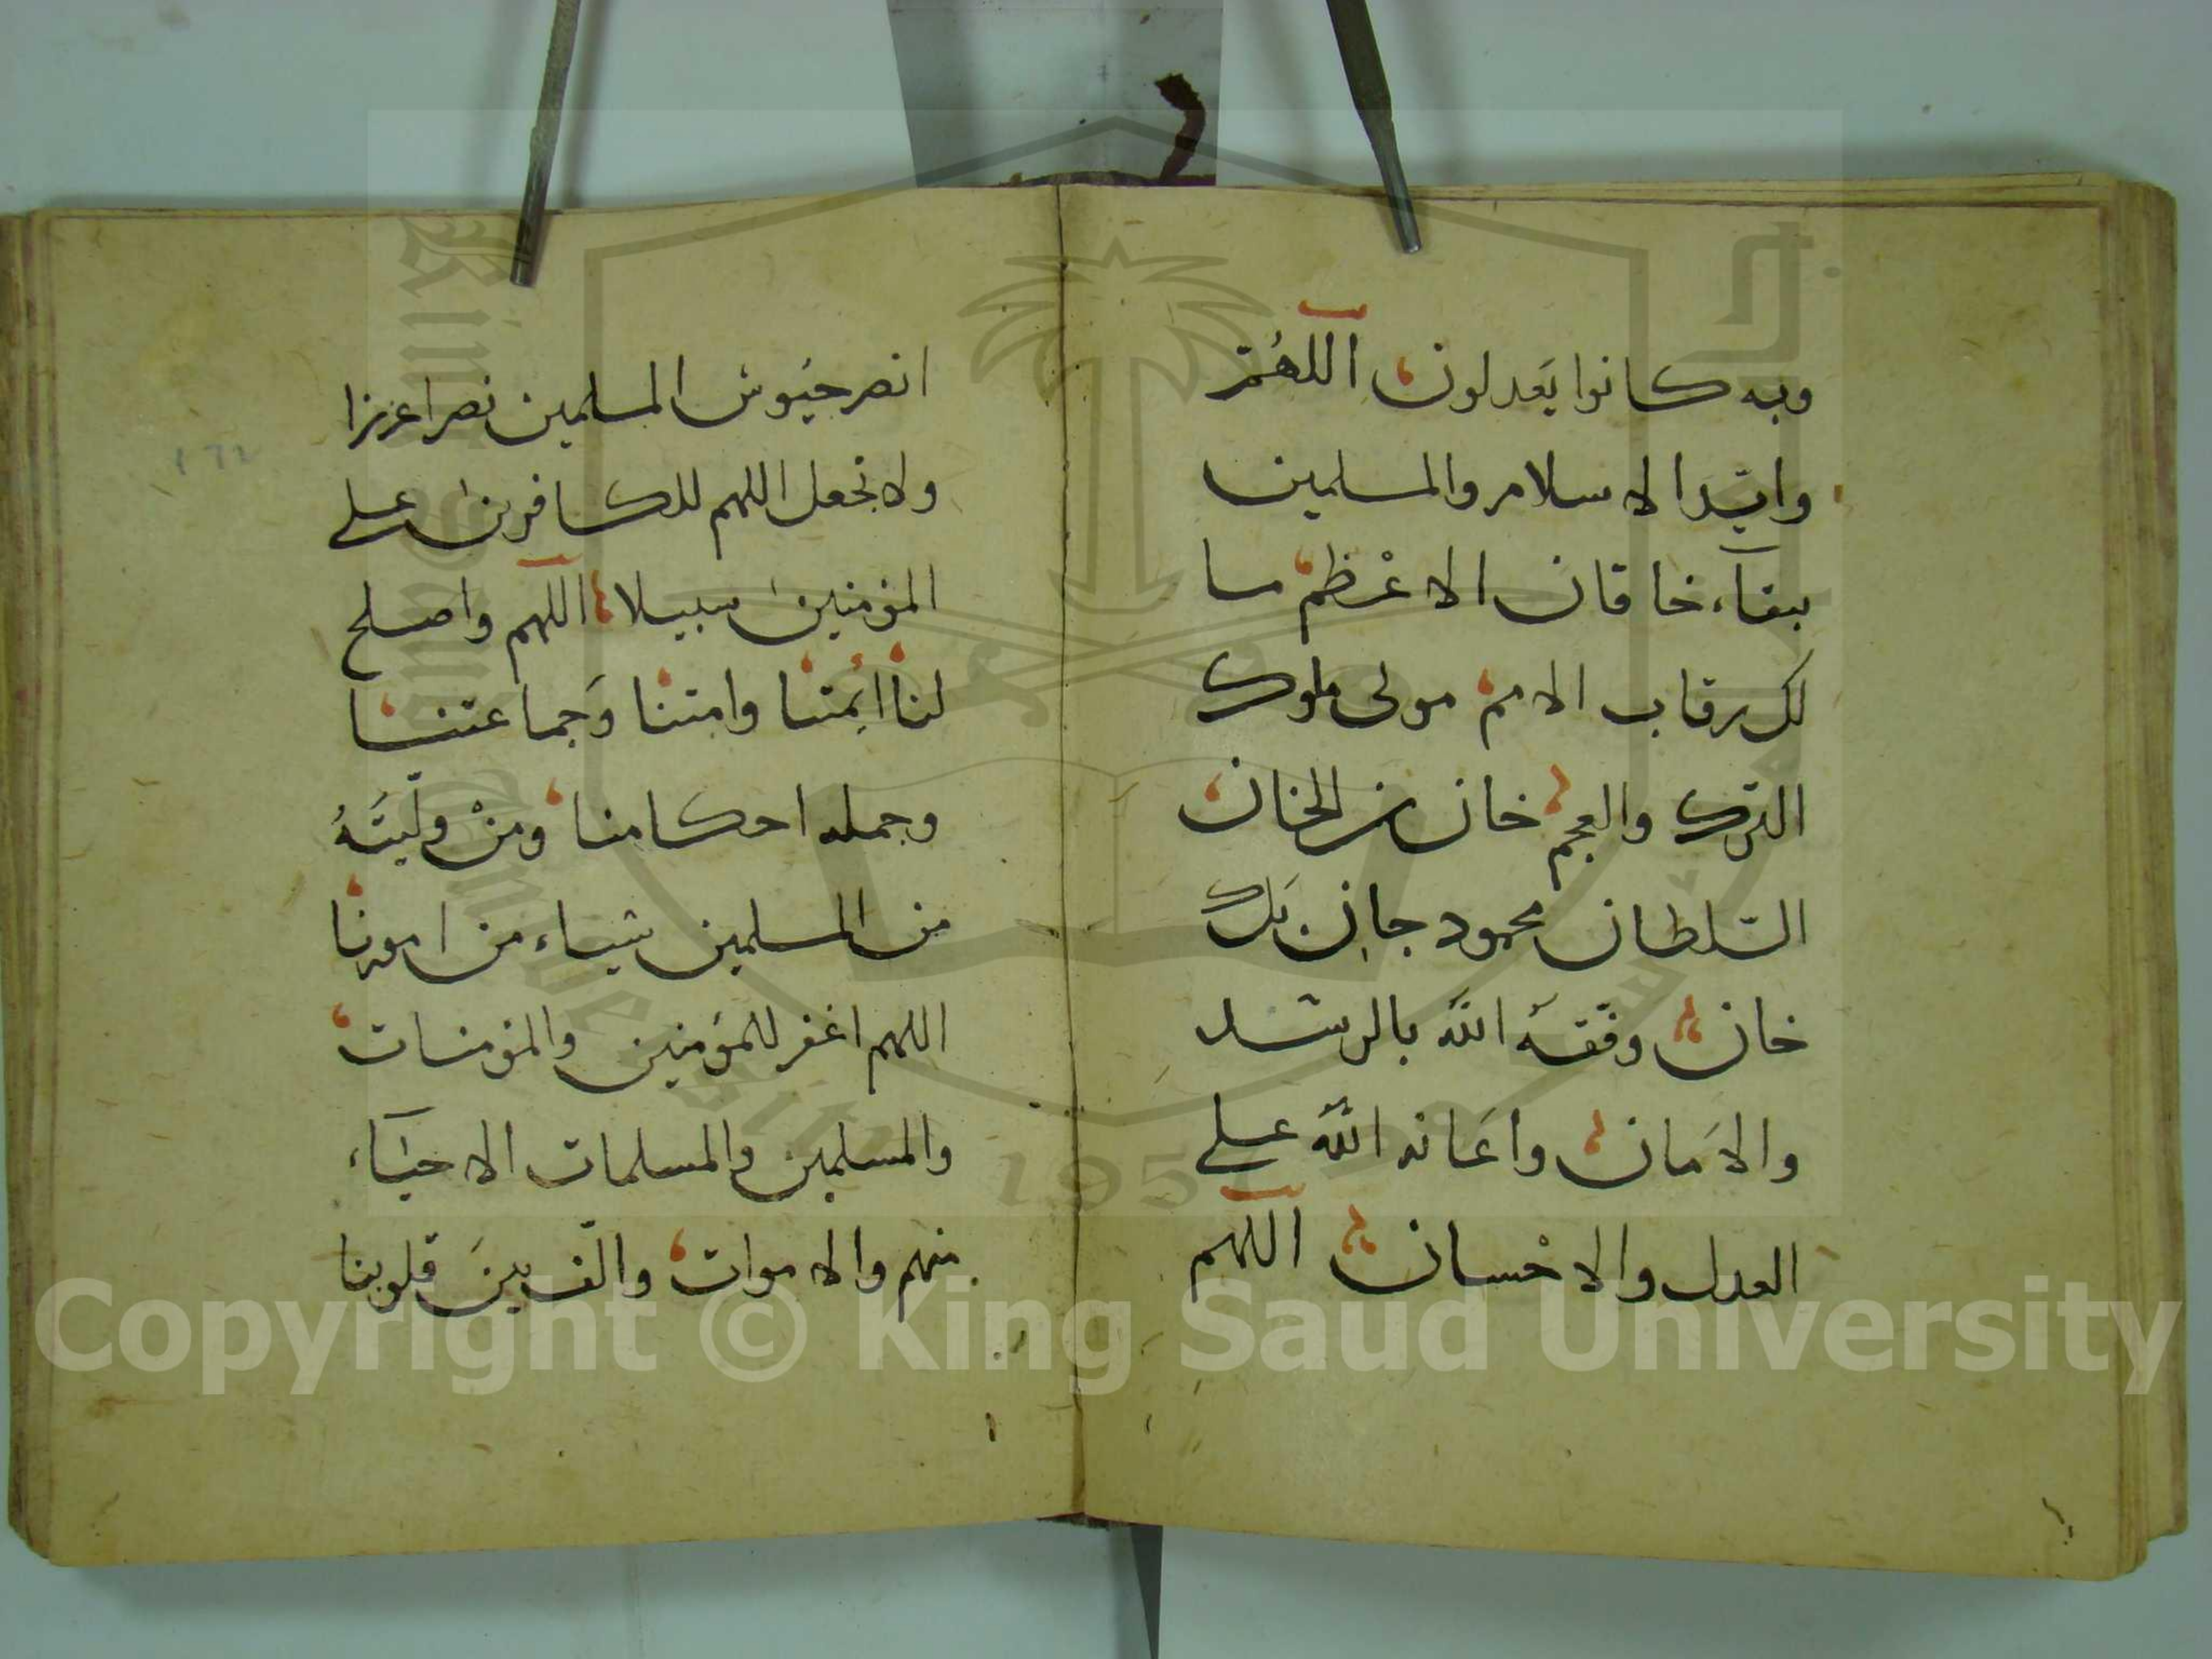 وبه كانوا يَعدلون اللهُمّ
وايّد الاسلام والمسلمين
ببقآء خاقان الاعْظم ما
لك رقاب الامم مولى ملوك
الترك والعجم خان بن الخان
السّلطان محمود جان بَك
خان وفّقهُ الله بالرشد
والامَان واعَانه اللّه على
العدل والاحْسان اللّهم
انصر جيُوش المسلمين نصرا عزيزا
ولا تجعل اللهم للكافرين على
المؤمنين سبيلا اللّهم واصلح
لنا ائمتنا وامتنا وَجماعتنا
وجمله احكامنا ومنْ ولّيتَهُ
من المسلمين شياء من امورنا
اللهم اغفر للمؤمنين والمؤمنات
والمسلمين والمسلمات الاحيَآء
منهم والاموات والّف بينَ قلوبنا
١٦٢
King Saud University
1957
Copyright © King Saud University